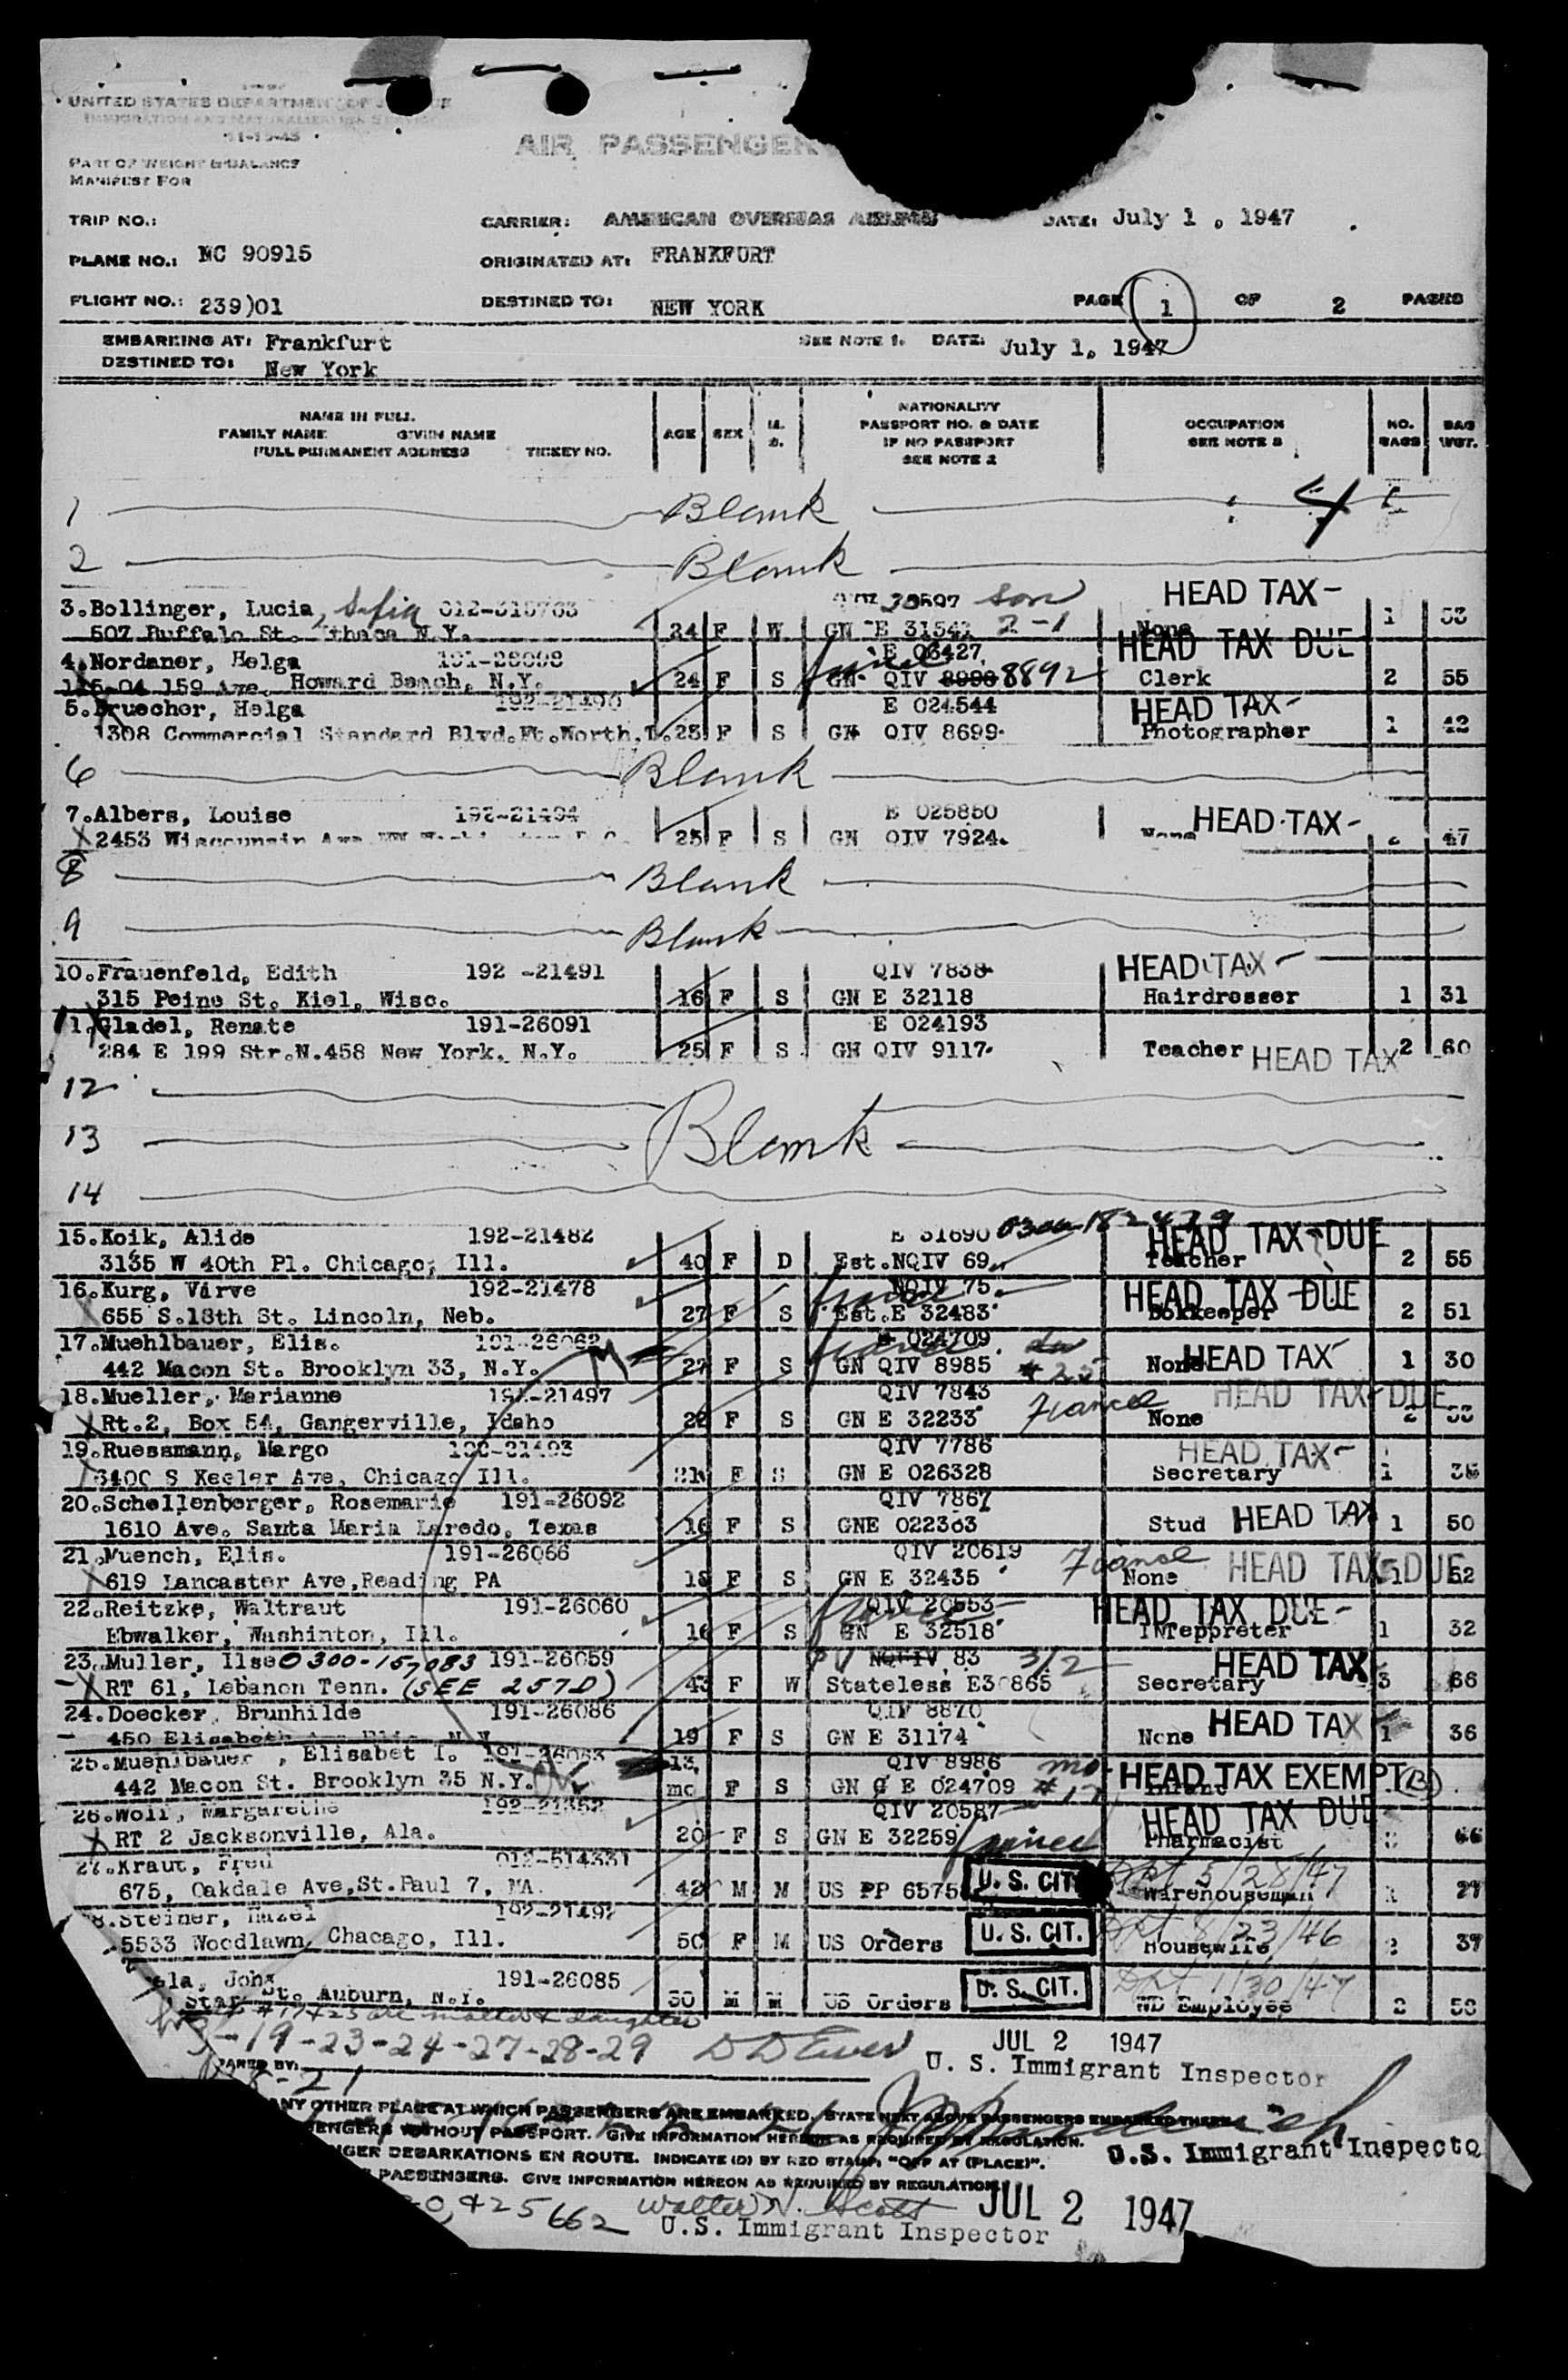 UNITED STATES DEPARTMENT OF
IMMIGRATION AND NATURALIZATION SERVICE
11-15-45
AIR PASSENGER
PART OF WEIGHT & BALANCE
MANIFEST FOR
TRIP NO.: CARRIER: AMERICAN OVERSEAS AIRLINES DATE: July 1, 1947
PLANE NO.: NC 90915 ORIGINATED AT: FRANKFURT
FLIGHT NO.: 239)01 DESTINED TO: NEW YORK PAGE 1 OF 2 PAGES
EMBARKING AT: Frankfurt SEE NOTE 1. DATE: July 1, 1947
DESTINED TO: New York
NAME IN FULL.
FAMILY NAME GIVEN NAME
FULL PERMANENT ADDRESS TICKET NO.
AGE SEX M. S.
NATIONALITY
PASSPORT NO. & DATE
IF NO PASSPORT
SEE NOTE 2
OCCUPATION
SEE NOTE 3
NO. BAGS BAG WGT.
1 Blank 4
2 Blank
3.Bollinger, Lucia, Sofia 012-515763 son HEAD TAX-
507 Buffalo St. Ithaca N.Y. 24 F W GN E 31542 2-1 None 1 53
4.Nordaner, Helga 191-26098 E 03427 HEAD TAX DUE
159 Ave. Howard Beach, N.Y. 24 F S GN QIV 8998 8892 Clerk 2 55
5.Bruecher, Helga 192-21490 E 024544 HEAD TAX-
1308 Commercial Standard Blvd.Ft.Worth,T. 25 F S GN QIV 8699 Photographer 1 42
6 Blank
7.Albers, Louise 192-21494 E 025850 HEAD TAX-
2453 25 F S GN QIV 7924. None 47
8 Blank
9 Blank
10.Frauenfeld, Edith 192 -21491 QIV 7838 HEAD TAX-
315 Peine St. Kiel, Wisc. 16 F S GN E 32118 Hairdresser 1 31
11.Gladel, Renate 191-26091 E 024193
284 E 199 Str.N.458 New York, N.Y. 25 F S GN QIV 9117 Teacher HEAD TAX 2 60
12
13 Blank
14
15.Koik, Alide 192-21482 E 31690 0300-182479 HEAD TAX-DUE
3135 W 40th Pl. Chicago, Ill. 40 F D Est.NQIV 69 Teacher 2 55
16.Kurg, Virve 192-21478 NQIV 75 HEAD TAX DUE
655 S.18th St. Lincoln, Neb. 27 F S Est.E 32483 Bokkeeper 2 51
17.Muehlbauer, Elis. 191-26062 024709 HEAD TAX-
442 Macon St. Brooklyn 33, N.Y. 27 F S GN QIV 8985 #25 None 1 30
18.Mueller, Marianne 191-21497 QIV 7843 Fiancee HEAD TAX-DUE
Rt.2, Box 54, Gangerville, Idaho 22 F S GN E 32233 None
19.Ruessmann, Margo QIV 7786 HEAD TAX-
3400 S Keeler Ave, Chicago Ill. 21 F S GN E 026328 Secretary 1
20.Schellenberger, Rosemarie 191-26092 QIV 7867
1610 Ave. Santa Maria Laredo, Texas 16 F S GNE 022363 Stud HEAD TAX 1 50
21.Muench, Elis. 191-26066 QIV 20619 Fiance
619 Lancaster Ave,Reading PA 18 F S GN E 32435 None HEAD TAX-DUE 1 52
22.Reitzke, Waltraut 191-26060 QIV 20553 HEAD TAX DUE-
Ebwalker, Washinton, Ill. 16 F S GN E 32518 INTeppreter 1 32
23.Muller, Ilse 0300-157083 191-26059 NQIV 83 3/2 HEAD TAX
RT 61, Lebanon Tenn. (SEE 257D) 43 F W Stateless E30865 Secretary 3 66
24.Doecker, Brunhilde 191-26086 QIV 8870
450 Elisabeth 19 F S GN E 31174 None HEAD TAX 1 36
25.Muehlbauer, Elisabet I. 191-26063 13 QIV 8986
442 Macon St. Brooklyn 35 N.Y. mo F S GN E 024709 #17 Infant HEAD TAX EXEMPT
26.Wolf, Margarethe 192-21352 QIV 20587 HEAD TAX DUE
RT 2 Jacksonville, Ala. 20 F S GN E 32259 fiancee Pharmacist 66
27.Kraut, Fred 012-514331 Dpt 5/28/47
675, Oakdale Ave,St.Paul 7, MA. 42 M M US PP 6575 U.S. CIT. Warehouseman 27
8.Steiner, Hazel 192-21492 Dpt 8/23/46
5533 Woodlawn, Chacago, Ill. 50 F M US Orders U.S. CIT. Housewife 2 37
ela, John 191-26085 Dpt 1/30/47
Star St. Auburn, N.Y. 30 M M US Orders U.S. CIT. WD Employee 2 58
#17 & 25 are mother & daughter
3-19-23-24-27-28-29 JUL 2 1947
U. S. Immigrant Inspector
ANY OTHER PLACE AT WHICH PASSENGERS ARE EMBARKED, STATE NEXT ABOVE PASSENGERS EMBARKED THERE.
PASSENGERS WITHOUT PASSPORT. GIVE INFORMATION HEREON AS REQUIRED BY REGULATION.
PASSENGER DEBARKATIONS EN ROUTE. INDICATE (D) BY RED STAMP, "OFF AT (PLACE)".
U.S. Immigrant Inspecto
PASSENGERS. GIVE INFORMATION HEREON AS REQUIRED BY REGULATION.
Walter N. Scott JUL 2 1947
U.S. Immigrant Inspector